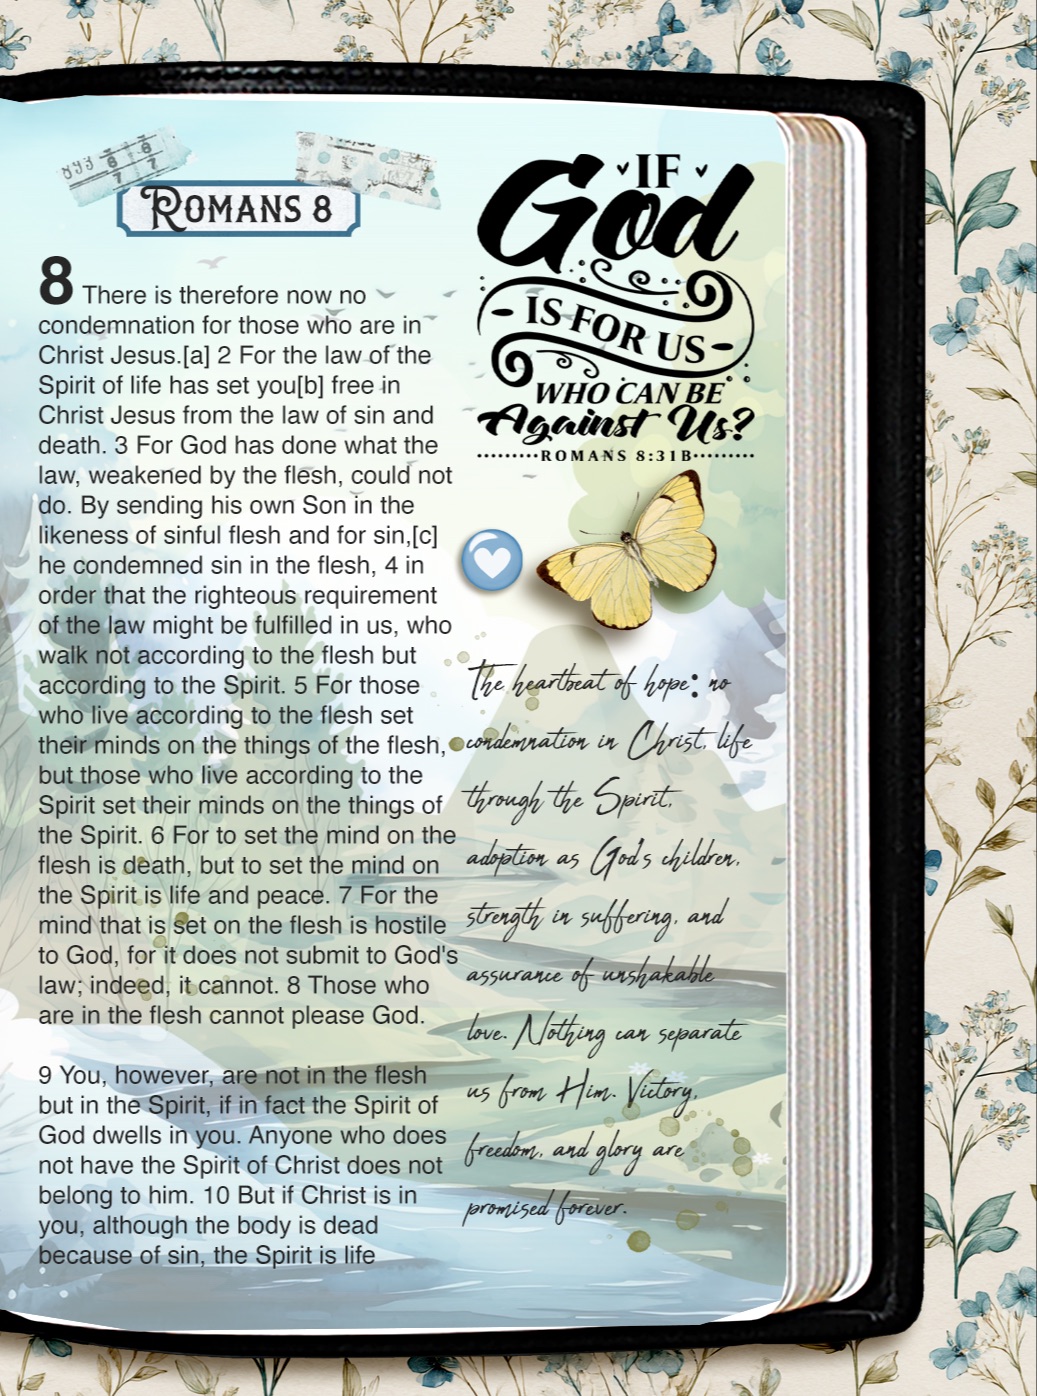 ROMANS 8
8 There is therefore now no
condemnation for those who are in
Christ Jesus.[a] 2 For the law of the
Spirit of life has set you[b] free in
Christ Jesus from the law of sin and
death. 3 For God has done what the
law, weakened by the flesh, could not
do. By sending his own Son in the
likeness of sinful flesh and for sin,[c]
he condemned sin in the flesh, 4 in
order that the righteous requirement
of the law might be fulfilled in us, who
walk not according to the flesh but
according to the Spirit. 5 For those
who live according to the flesh set
their minds on the things of the flesh,
but those who live according to the
Spirit set their minds on the things of
the Spirit. 6 For to set the mind on the
flesh is death, but to set the mind on
the Spirit is life and peace. 7 For the
mind that is set on the flesh is hostile
to God, for it does not submit to God's
law; indeed, it cannot. 8 Those who
are in the flesh cannot please God.
9 You, however, are not in the flesh
but in the Spirit, if in fact the Spirit of
God dwells in you. Anyone who does
not have the Spirit of Christ does not
belong to him. 10 But if Christ is in
you, although the body is dead
because of sin, the Spirit is life
IF
God
IS FOR US
WHO CAN BE
Against Us?
ROMANS 8:31B
The heartbeat of hope: no
condemnation in Christ, life
through the Spirit,
adoption as God's children,
strength in suffering, and
assurance of unshakable
love. Nothing can separate
us from Him. Victory,
freedom, and glory are
promised forever.